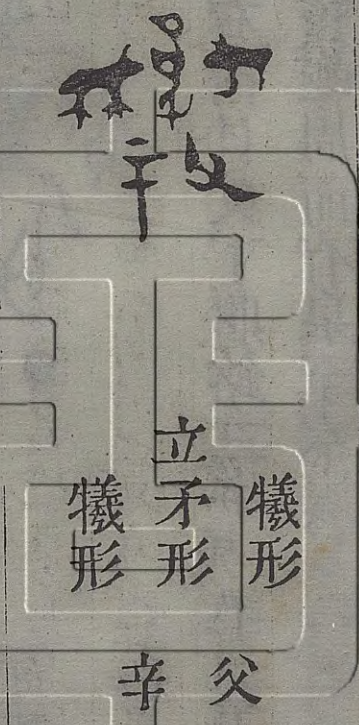 犧形
立矛形
犧形
父
辛